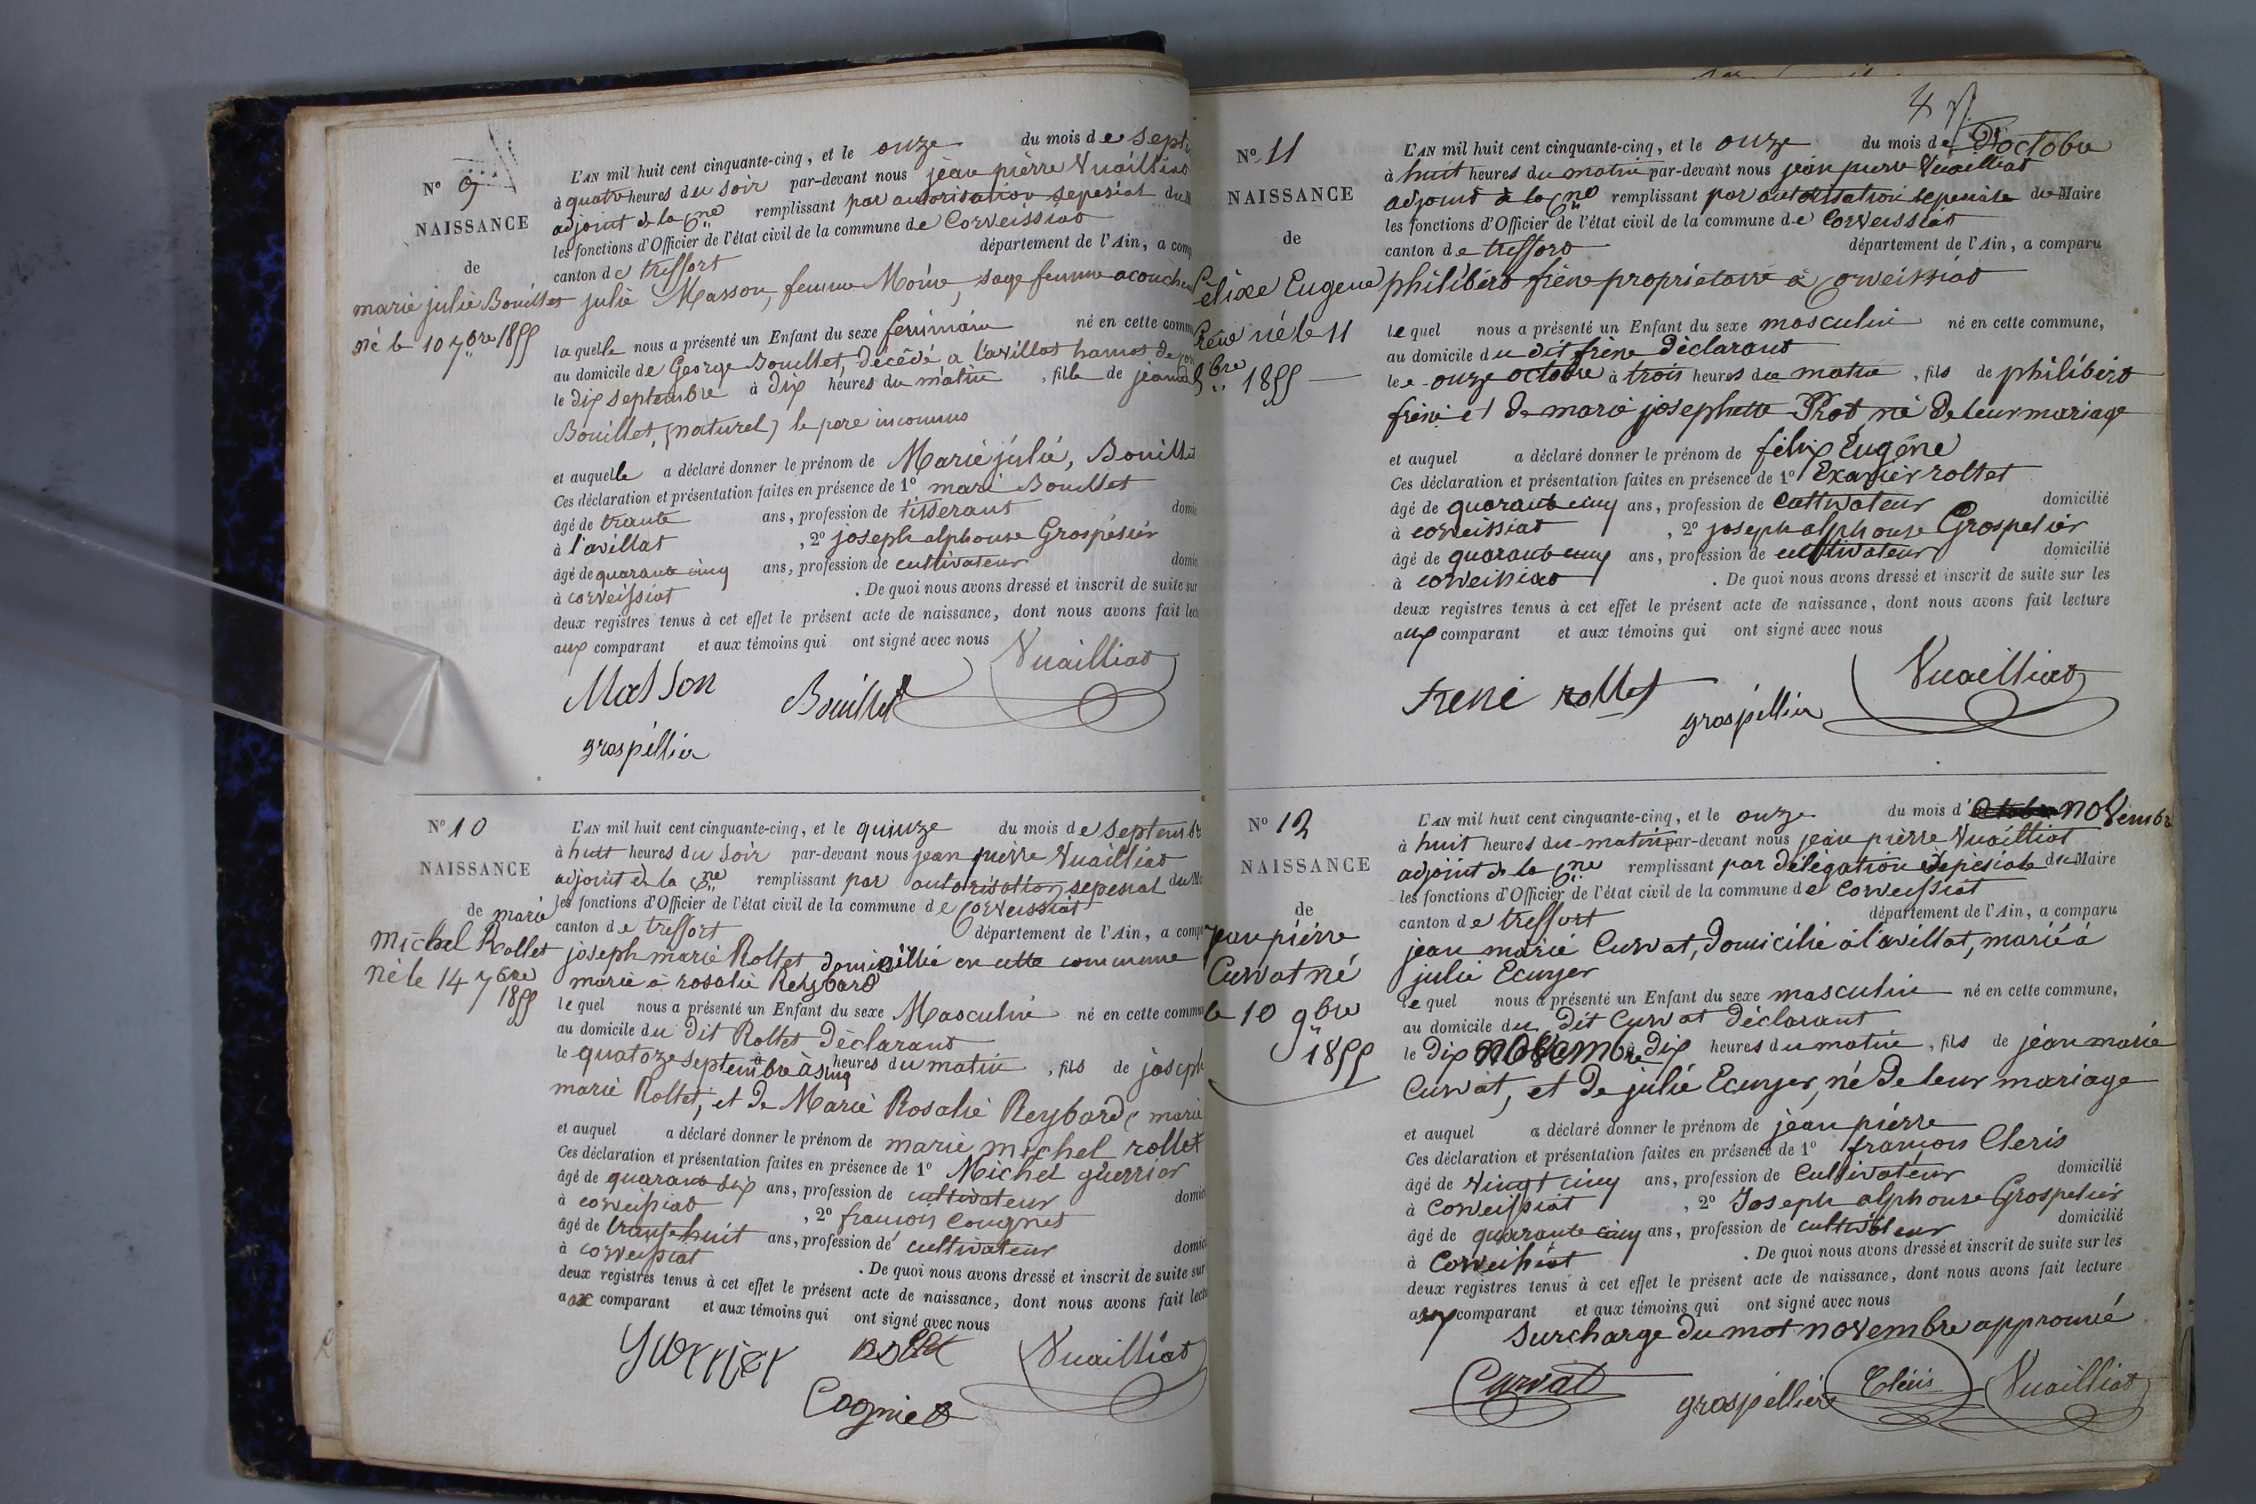 N° 9
NAISSANCE
de
marie julie Bouillet
né le 10 7bre 1855
L'AN mil huit cent cinquante-cinq, et le onze du mois de sept
à quatre heures du soir par-devant nous jean pierre Vuailliat
adjoint de la Cne remplissant par autorisation sepesial du
les fonctions d'Officier de l'état civil de la commune de Corveissiat
canton de treffort département de l'Ain, a comp
julie Masson, femme Moine, sage femme acouche
la quelle nous a présenté un Enfant du sexe feminain né en cette comm
au domicile de George Bouillet, décédé a l'avillat hamot de
le dix septembre à dix heures du matin, fille de jeanne
Bouillet, (naturel) le pere inconnus
et auquelle a déclaré donner le prénom de Marie julie, Bouillet
Ces déclaration et présentation faites en présence de 1° marie Bouillet
âgé de trante ans, profession de tisserant domi
à l'avillat, 2° joseph alphonse Grospélier
âgé de quarante cinq ans, profession de cultivateur domic
à corveissiat. De quoi nous avons dressé et inscrit de suite sur
deux registres tenus à cet effet le présent acte de naissance, dont nous avons fait lec
aux comparant et aux témoins qui ont signé avec nous
Masson Bouillet Vuailliat
grospéllier
N° 10
NAISSANCE
de marie
Michel Rollet
né le 14 7bre
1855
L'AN mil huit cent cinquante-cinq, et le quinze du mois de septembr
à huit heures du soir par-devant nous jean pierre Vuailliat
adjoint de la Cne remplissant par autorisation sepesial du M
les fonctions d'Officier de l'état civil de la commune de Corveissiat
canton de treffort département de l'Ain, a compa
joseph marie Rollet domicillié en cette commune
marié à rosalie Reybard
le quel nous a présenté un Enfant du sexe Masculin né en cette commu
au domicile du dit Rollet Déclarant
le quatoze septembre à cinq heures du matin, fils de joseph
marie Rollet, et de Marie Rosalie Reybard, marié
et auquel a déclaré donner le prénom de marie michel rollet
Ces déclaration et présentation faites en présence de 1° Michel guerrier
âgé de quarante six ans, profession de cultivateur domici
à corveissiat, 2° francois Cougniet
âgé de trante huit ans, profession de cultivateur domici
à corveissiat. De quoi nous avons dressé et inscrit de suite sur
deux registres tenus à cet effet le présent acte de naissance, dont nous avons fait lectu
aux comparant et aux témoins qui ont signé avec nous
guerrier Rollet Vuailliat
Cogniet
N° 11
NAISSANCE
de
félixe Eugene
frène né le 11
8bre 1855
L'AN mil huit cent cinquante-cinq, et le onze du mois de D'octobre
à huit heures du matin par-devant nous jean pierre Vuailliat
adjoint de la Cne remplissant par autorisation sepesiale du Maire
les fonctions d'Officier de l'état civil de la commune de Corveissiat
canton de treffort département de l'Ain, a comparu
philibért frène propriétaire à Corveissiat
le quel nous a présenté un Enfant du sexe masculin né en cette commune,
au domicile du dit frène déclarant
le onze octobre à trois heures du matin, fils de philibért
frène et de marie josephette Prot né de leur mariage
et auquel a déclaré donner le prénom de félix Eugéne
Ces déclaration et présentation faites en présence de 1° Exavier rollet
âgé de quarante cinq ans, profession de cultivateur domicilié
à corveissiat, 2° joseph alphonse Grospelier
âgé de quarante cinq ans, profession de cultivateur domicilié
à corveissiat. De quoi nous avons dressé et inscrit de suite sur les
deux registres tenus à cet effet le présent acte de naissance, dont nous avons fait lecture
aux comparant et aux témoins qui ont signé avec nous
frene rollet grospéllier Vuailliat
N° 12
NAISSANCE
de
jean piérre
Curvat né
le 10 9bre
1855
L'AN mil huit cent cinquante-cinq, et le onze du mois d'octobre novembre
à huit heures du matin par-devant nous jean pièrre Vuailliat
adjoint de la Cne remplissant par délégation sepésiale du Maire
les fonctions d'Officier de l'état civil de la commune de Corveissiat
canton de treffort département de l'Ain, a comparu
jean marie Curvat, domicilié à l'avillat, marié à
julie Ecuyer
le quel nous a présenté un Enfant du sexe masculin né en cette commune,
au domicile du Dit Curvat Déclarant
le Dix novembre à dix heures du matin, fils de jéan marie
Curvat, et de julié Ecuyer, né De leur mariage
et auquel a déclaré donner le prénom de jéan piérre
Ces déclaration et présentation faites en présence de 1° francois Cleris
âgé de vingt cinq ans, profession de Cultivateur domicilié
à Corveissiat, 2° Joseph alphonse Grospelier
âgé de quarante cinq ans, profession de cultivateur domicilié
à Corveissiat. De quoi nous avons dressé et inscrit de suite sur les
deux registres tenus à cet effet le présent acte de naissance, dont nous avons fait lecture
aux comparant et aux témoins qui ont signé avec nous
surcharge du mot novembre approuvé
Curvat grospéllier Cléris Vuailliat